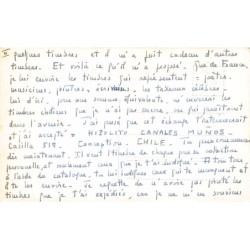 II quelques timbres et il m'a fait cadeau d'autres
timbres. Et voilà ce qu'il m'a proposé. Que de France,
je lui envoie les timbres qui représentent : poètes,
musiciens, peintres, écrivains, les tableaux célèbres.
lui d'ici, pour une somme équivalente, m'enverrait les
timbres chiliens que je n'ai pas encore, ou qui paraîtront
dans l'avenir. J'ai pensé que cet échange t'intéresserait
et j'ai accepté = HIPOLITO CANALES MUÑOS.
Casilla 818. Concepcion, CHILE. Tu peux commencer
dès maintenant. Il veut 1 timbre de chaque pour sa collection
personnelle, et vraiment ceux que je t'ai indiqués. A ton tour,
à l'aide du catalogue, tu lui indiques ceux qui te manquent et il
te les envoie. Je regrette de n'avoir pas gardé les
timbres que je t'ai expédiés, car je ne m'en souviens